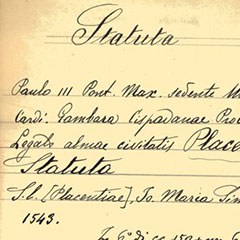 Statuta
Paulo III Pont. Max. sedente
Card. Gambara Cispadanae
Legato almae civitatis Place
Statuta
S. l. [Placentiae], Jo. Maria
1543.